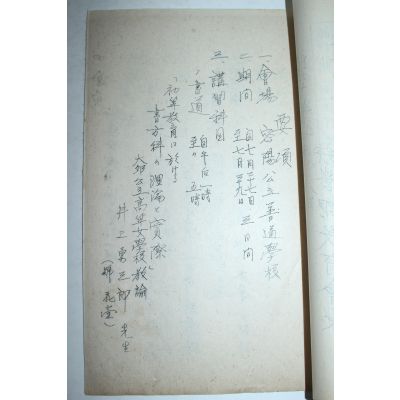 要項
一、會場 密陽公立普通學校
二、期間 自七月二十七日 至七月二十九日 三日間
三、講習科目
書道 自午后一時 至〃五時
「初等教育に於ける
書方科の理論と實際
大邱公立高等女學校教諭
井上勇三郎先生